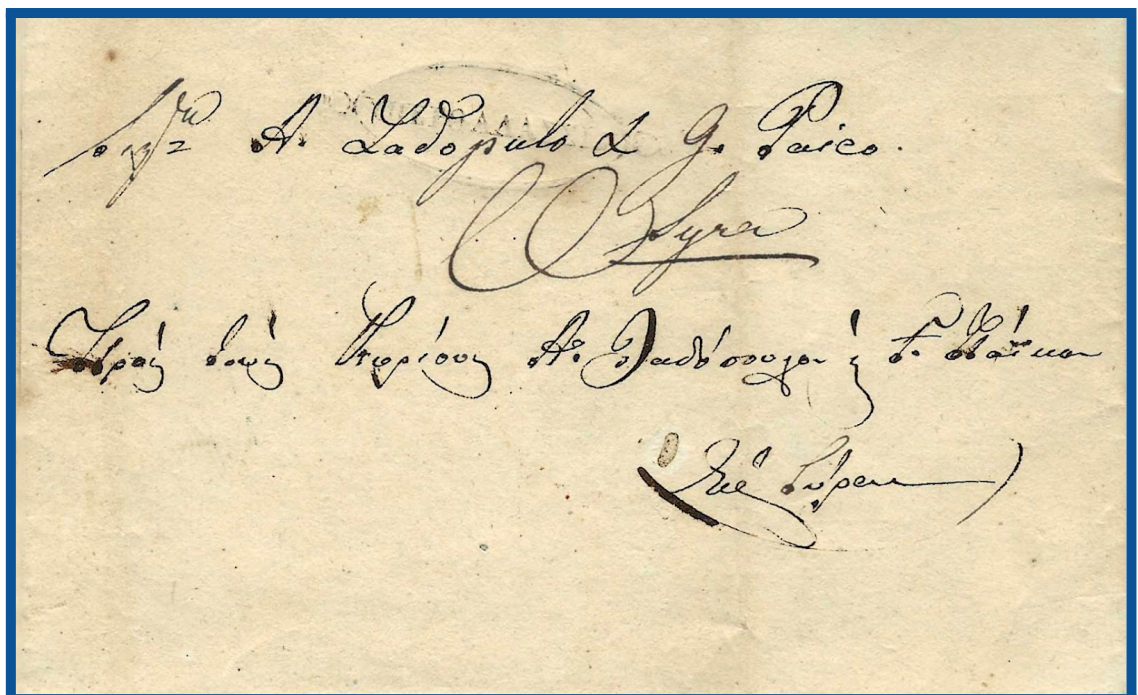 Sigri A. Ladopulo & G. Raico.
Syra
Πρός τούς Κυρίους Α. Λαδόπουλον & Γ. Ράϊκον
Εἰς Σύραν